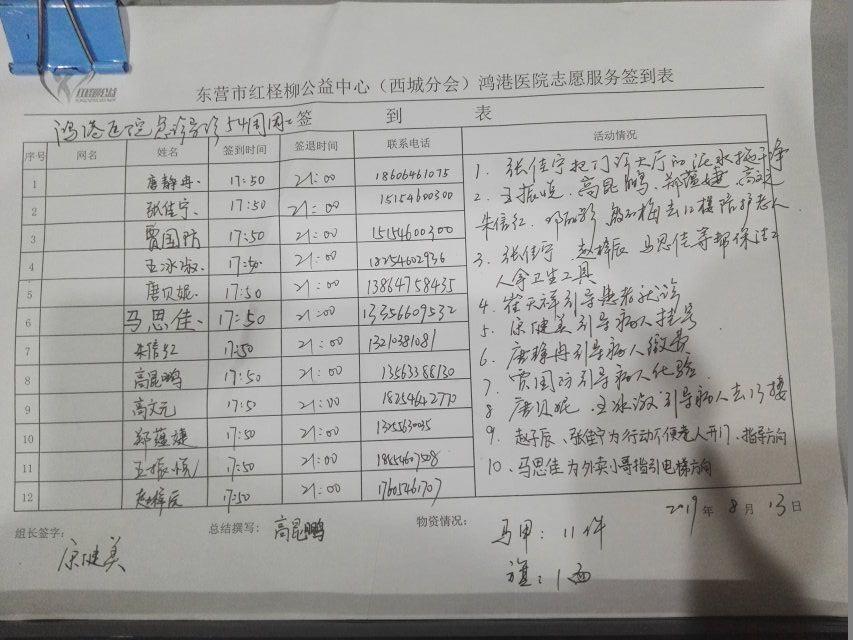 东营市红柽柳公益中心（西城分会）鸿港医院志愿服务签到表
鸿港医院急诊导诊54周周二 签 到 表
序号 网名 姓名 签到时间 签退时间 联系电话 活动情况
1 唐静冉 17:50 21:00 18606461075
2 张佳宁 17:50 21:00 15154600300
3 贾国防 17:50 21:00 15154600300
4 王冰淑 17:50 21:00 18254602936
5 唐贝妮 17:50 21:00 13864758435
6 马思佳 17:50 21:00 13356609532
7 朱信红 17:50 21:00 13210381081
8 高昆鹏 17:50 21:00 13563388130
9 高文元 17:50 21:00 18254642770
10 郑蕴婕 17:50 21:00
11 王振悦 17:50 21:00
12 赵梓辰 17:50 21:00 17605461707
1、张佳宁把门诊大厅的泥水拖干净
2、王振悦、高昆鹏、郑蕴婕、高文元
朱信红、去12楼陪护老人
3、张佳宁 赵梓辰 马思佳等帮保洁工
人拿卫生工具
4、崔天祥引导患者就诊
5、康健美引导病人挂号
6、唐静冉引导病人缴费
7、贾国防引导病人化验
8 唐贝妮、王冰淑引导病人去13楼
9、赵子辰、张佳宁为行动不便老人开门、指导方向
10、马思佳为外卖小哥指引电梯方向
2019年8月13日
组长签字： 总结撰写：高昆鹏 物资情况：马甲：11件
康健美 旗：1面